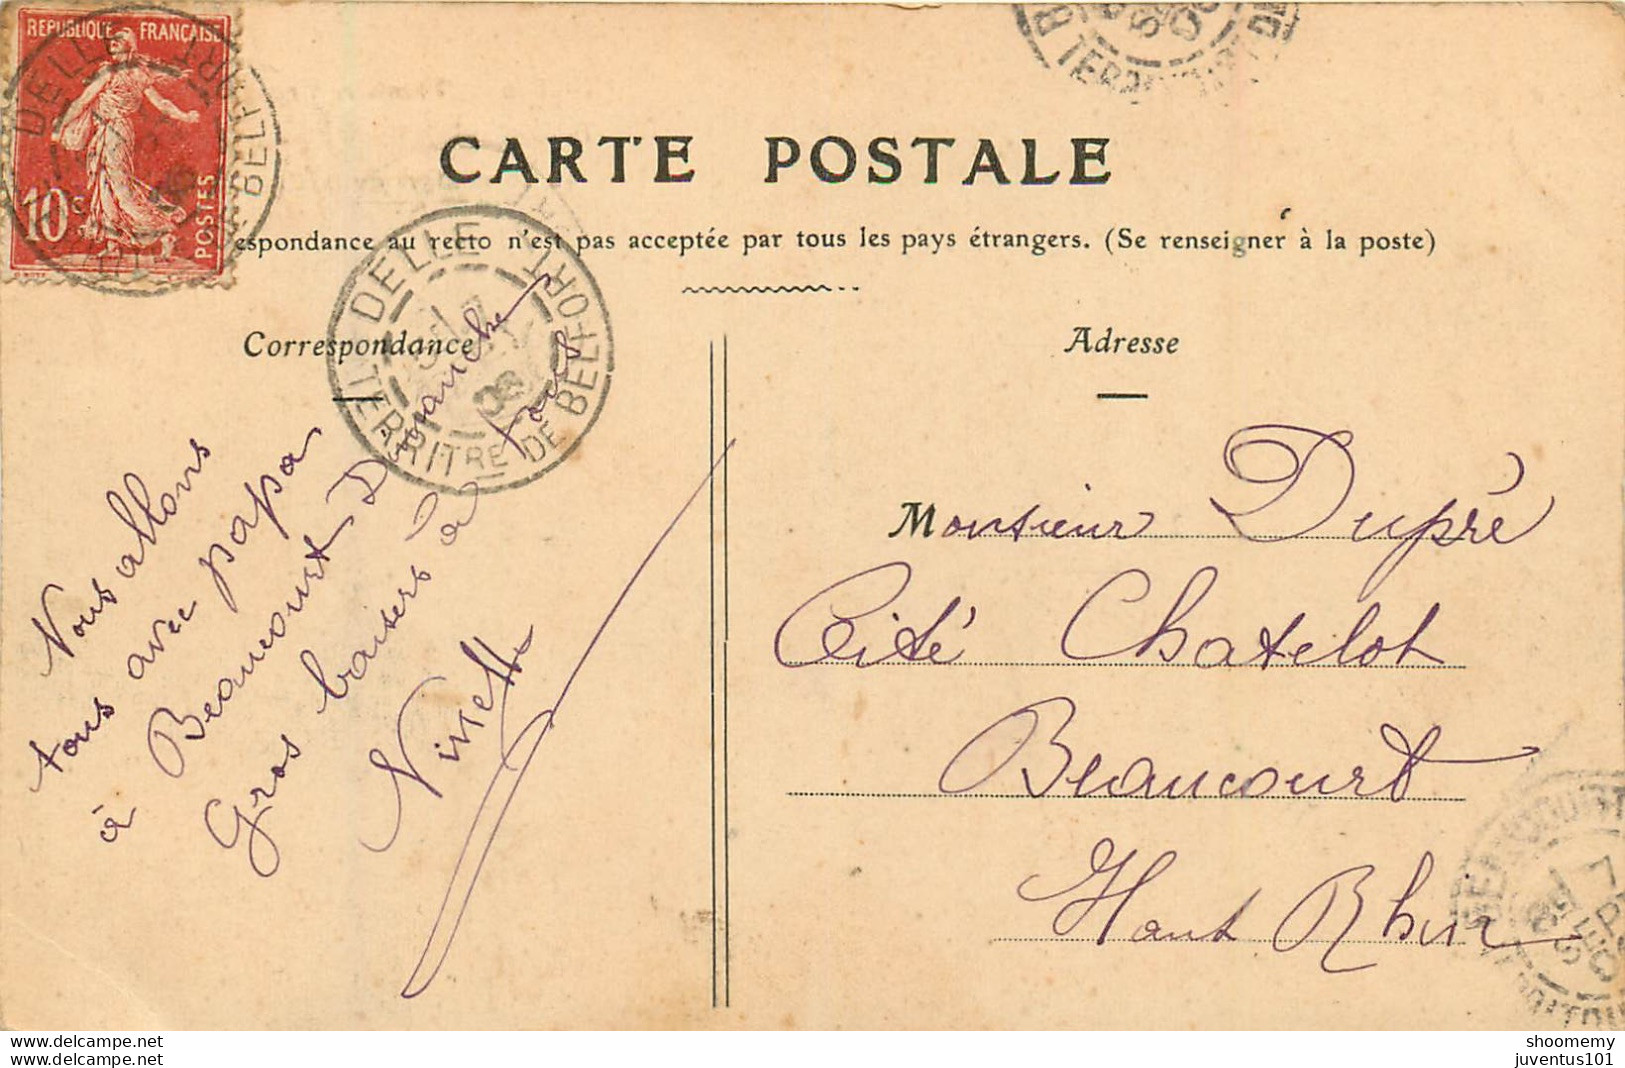 REPUBLIQUE FRANÇAISE
10c
POSTES
DELLE
TERRIT. DE BELFORT
CARTE POSTALE
espondance au recto n'est pas acceptée par tous les pays étrangers. (Se renseigner à la poste)
Correspondance
DELLE
08
TERRITRE DE BELFORT
Nous allons
tous avec papa
à Beaucourt Dimanche
Gros baisers à tous
Ninette
Adresse
Monsieur Dupré
Cité Chatelot
Beaucourt
Haut Rhin
BEAUCOURT
www.delcampe.net
juventus101
shoomemy
juventus101